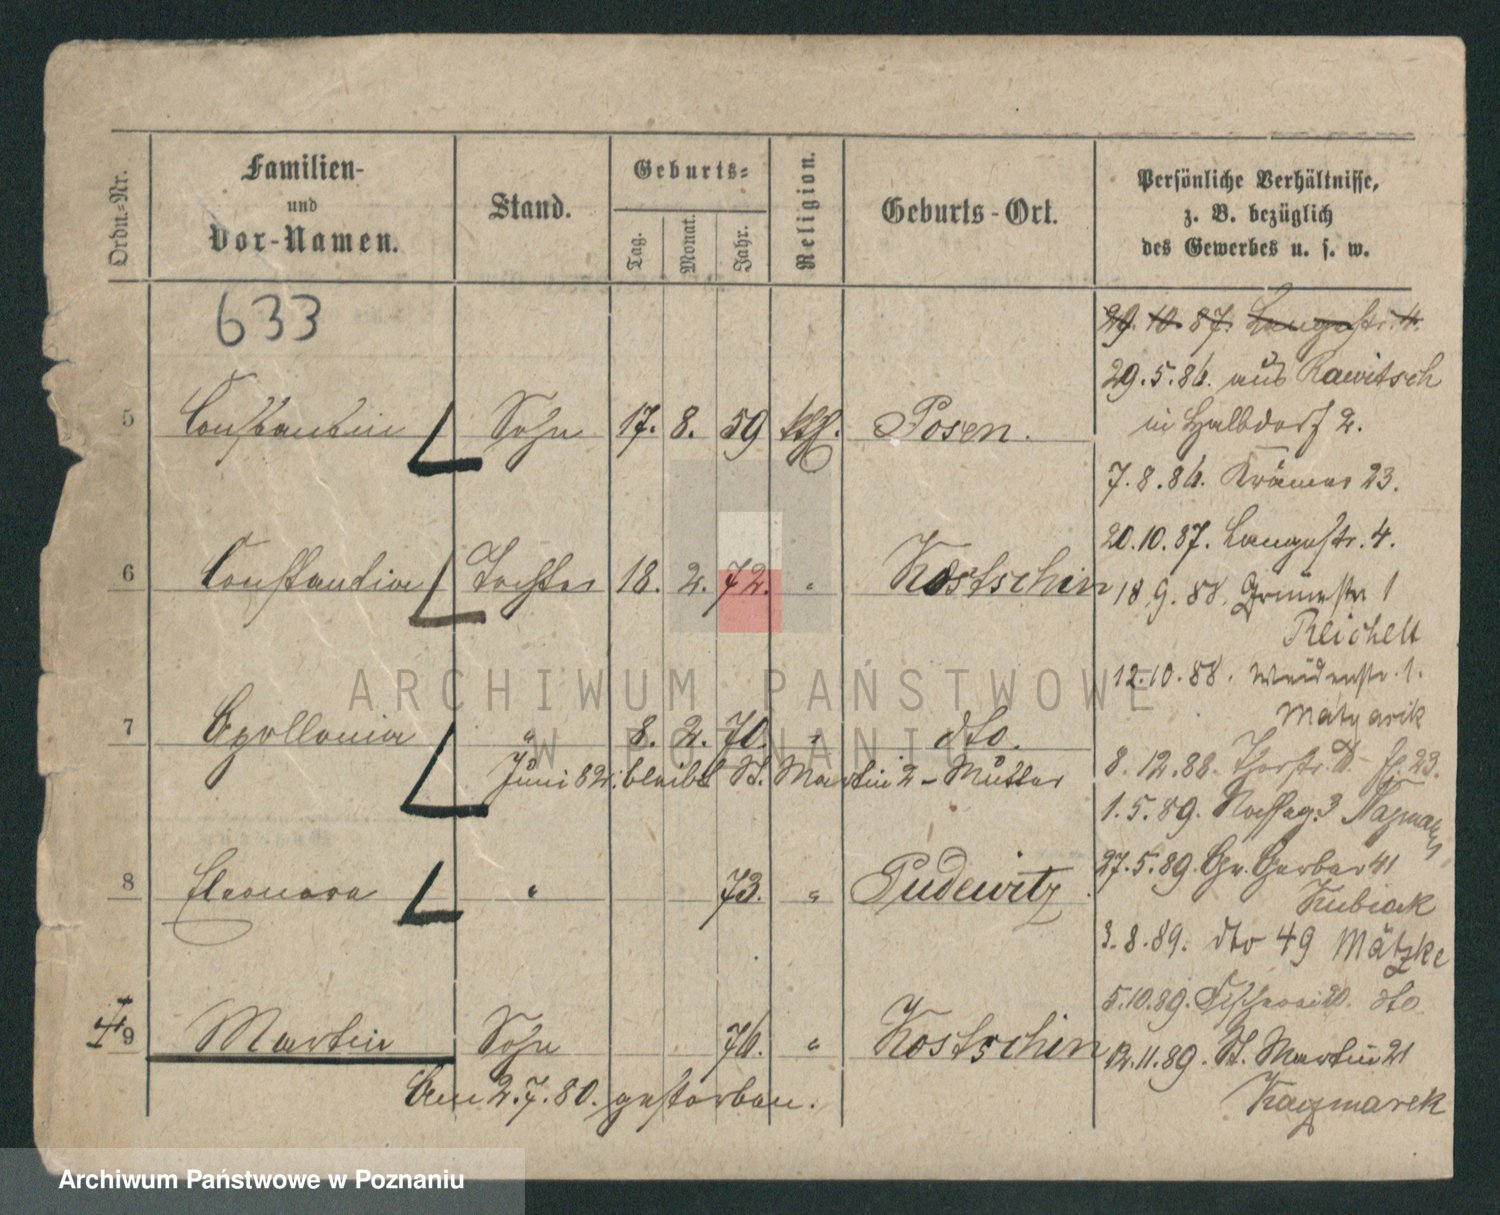 Ordn.-Nr.
Familien-
und
Vor-Namen.
Stand.
Geburts-
Tag.
Monat.
Jahr.
Religion.
Geburts-Ort.
Persönliche Verhältnisse,
z. B. bezüglich
des Gewerbes u. s. w.
633
29. 10. 87. Langestr. 4.
29. 5. 86. aus Rawitsch
in Halbdorf 2.
5 Constantin Sohn 17. 8. 59 kth. Posen.
7. 8. 86. Krämer 23.
20. 10. 87. Langestr. 4.
6 Constantia Tochter 18. 2. 72. " Kostschin
18. 9. 88. Grünestr 1
Reichelt
12. 10. 88. Weidenstr. 1.
Matyarik
7 Apollonia " 8. 2. 70. " dto.
Juni 82. bleibt St. Martin 2 - Mutter
8. 12. 88. 23.
1. 5. 89. 3
27. 5. 89. Gr. Gerber 41
8 Eleonora " 73. " Pudewitz.
Kubiak
3. 8. 89. dto 49 Mätzke
5. 10. 89. Fischerei 20. dto
9 Martin Sohn 76. " Kostschin
12. 11. 89. St. Martin 21
Am 2. 7. 80. gestorben.
Kaczmarek
ARCHIWUM PAŃSTWOWE
W POZNANIU
Archiwum Państwowe w Poznaniu